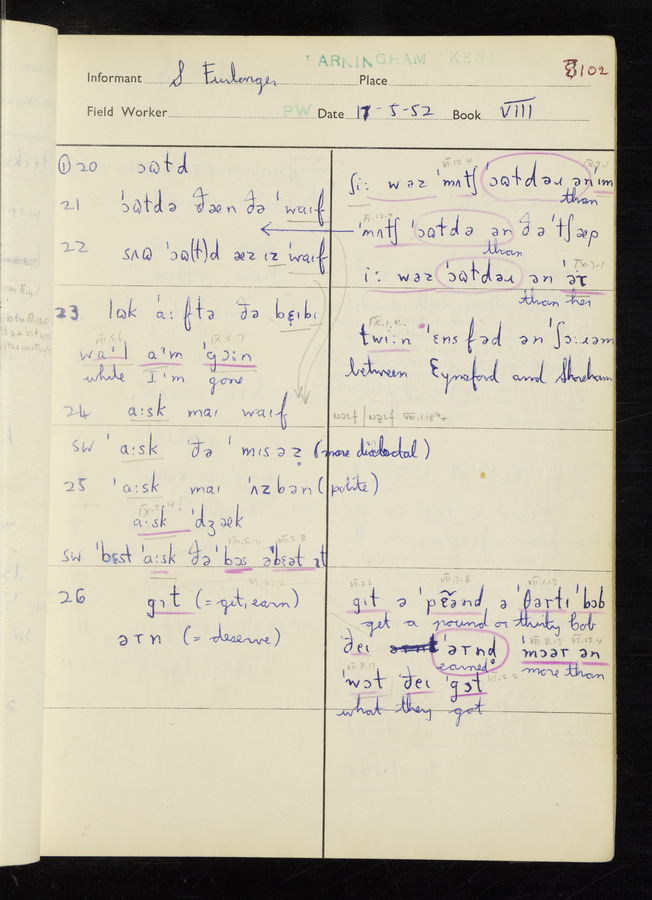 ARNINGHAM KENT
102
Informant S Place
Field Worker PW Date 17-5-52 Book VIII
① 20 ɔɷtd
21 ˈɔɷtdə ðæn ðə ˈwaɪf
22 sʌɷ ˈɔɷ(t)d æz ɪz ˈwaɪf
23 lɷk ˈaːftə ðə
waˑɪl aˑɪm ˈgɔːn
while I'm gone
24 aːsk maɪ waɪf
SW ˈaːsk ðə ˈmɪsəz (more dialectal)
25 ˈaːsk maɪ ˈʌzbən (polite)
aːsk ˈdʒæk
SW ˈaːsk ðə ˈbɔs
26 gɪt (= get, earn)
ərn (= deserve)
ʃiː wəz ˈmʌtʃ ˈɔɷtdəɹ ən ɪm
than
ˈmʌtʃ ˈɔɷtdə ən ðə ˈtʃæp
than
iː wəz ˈɔɷtdəɹ ən
than her
twiːn ˈɛnsfəd ən ˈʃɔːɹəm
between Eynsford and Shoreham
gɪt ə ə ˈθərtɪ ˈbɔb
get a pound or thirty bob
ðeɪ ˈərnd mɔər ən
earned more than
ˈwɔt ðeɪ ˈgɔt
what they got